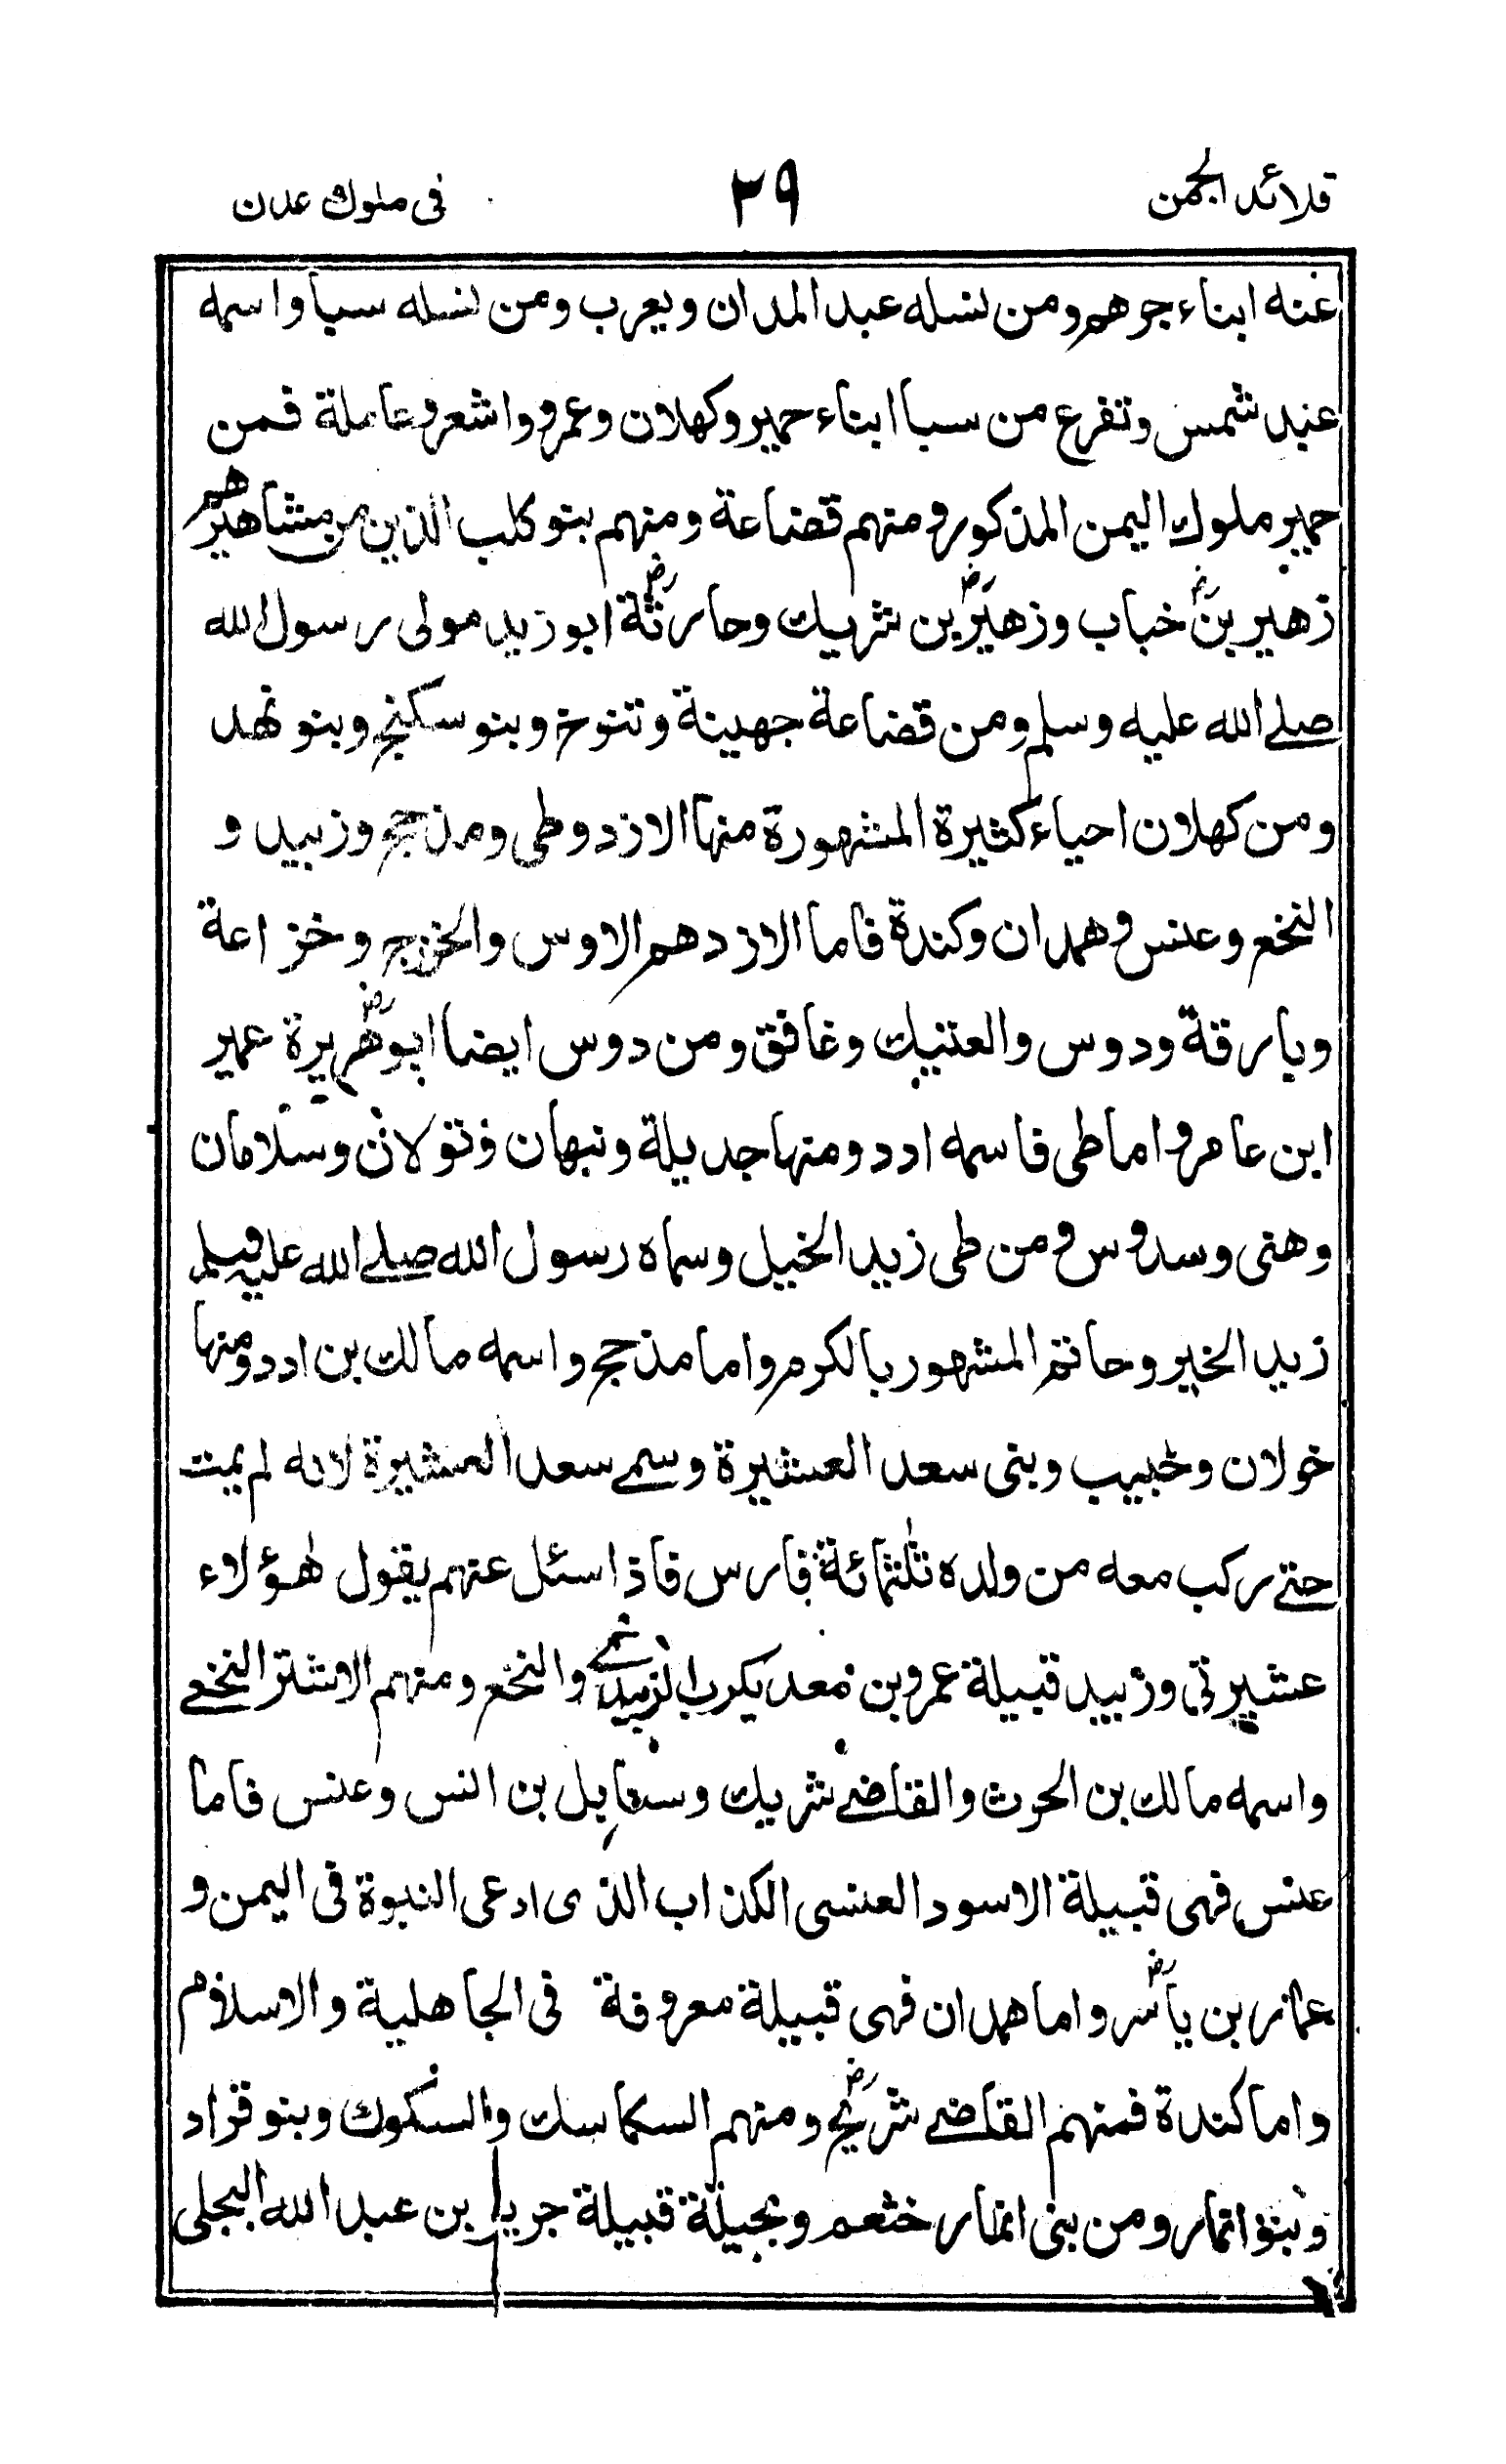 قلائد الجمن ٢٩ فى ملوك عدن
عنه ابناء جرهم ومن نسله عبد المدان ويعرب ومن نسله سبا واسمه
عبد شمس وتفرع من سبا ابناء حمير وكهلان وعمرو واشعر وعاملة فمن
حمير ملوك اليمن المذكور ومنهم قضاعة ومنهم بنو كلب الذين من مشاهيرهم
زهير بن خباب وزهير بن شريك وحارثة ابو زيد مولى رسول الله
صلے الله عليه وسلم ومن قضاعة جهينة وتنوخ وبنو سكنج وبنو نهد
ومن كهلان احياء كثيرة المشهورة منها الازد وطى ومذحج وزبيد و
النخع وعنس وهمدان وكندة فاما الازد هم الاوس والخزرج وخزاعة
وبارقة ودوس والعتيك وغافق ومن دوس ايضا ابو هريرة عمير
ابن عامر واما طى فاسمه ادد ومنها جديلة ونبهان وتولان وسلامان
وهنى وسدوس ومن طى زيد الخيل وسماه رسول الله صلے الله عليه وسلم
زيد الخير وحاتم المشهور بالكرم واما مذحج واسمه مالك بن ادد ومنها
خولان وخبيب وبنى سعد العشيرة وسمے سعد العشيرة لانه لم يمت
حتے ركب معه من ولده ثلثمائة فارس فاذا سئل عنهم يقول هؤلاء
عشيرتى وزبيد قبيلة عمرو بن معد يكرب الزبيدے والنخع ومنهم الاشتر النخعے
واسمه مالك بن الحرث والقاضے شريك بن انس وعنس فاما
عنس فهى قبيلة الاسود العنسى الكذاب الذى ادعى النبوة فى اليمن و
عمار بن ياسر واما همدان فهى قبيلة معروفة فى الجاهلية والاسلام
واما كندة فمنهم القاضے شريح ومنهم السكاسك والسكوك وبنو قراد
وبنو انمار ومن بنى انمار خثعم وبجيلة قبيلة جرير بن عبد الله البجلى